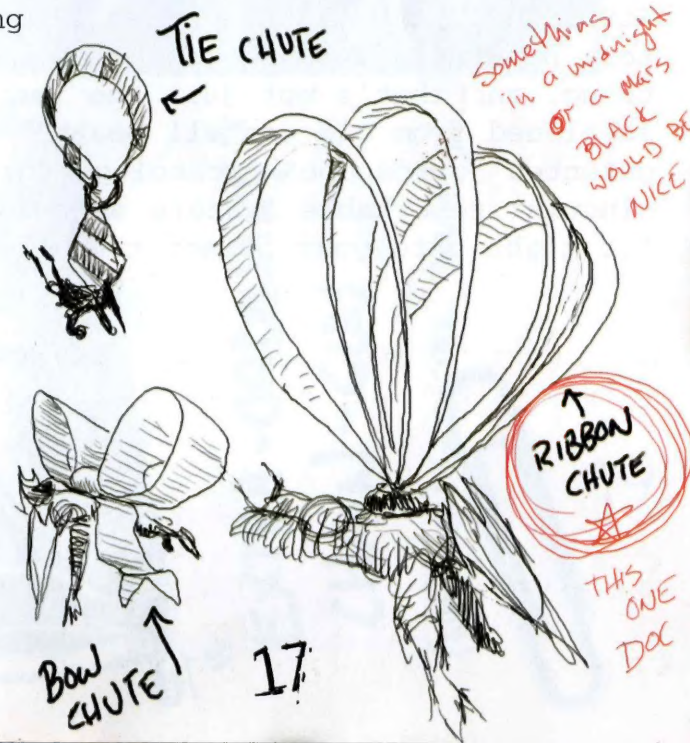 ng
TIE CHUTE
Something
in a midnight
or a mars
BLACK
WOULD BE
NICE
RIBBON
CHUTE
THIS
ONE
DOC
BOW
CHUTE
17